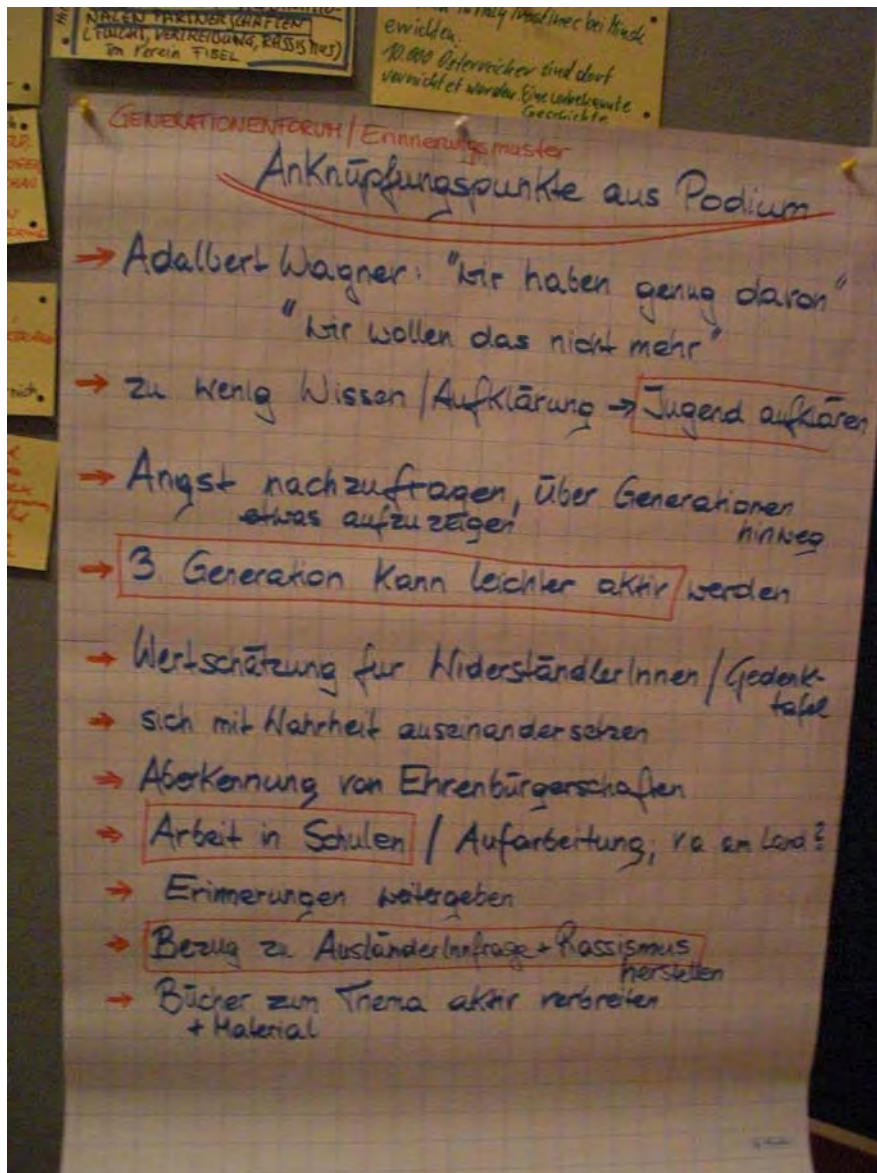 NALEN PARTNERSCHAFTEN
(FLUCHT, VERTREIBUNG, RASSISMUS)
im Verein FIBEL
bei Minsk
errichten.
10.000 Österreicher sind dort
vernichtet worden. Eine unbekannte
Geschichte
GENERATIONENFORUM / Erinnerungsmuster
Anknüpfungspunkte aus Podium
→ Adalbert Wagner: "wir haben genug davon"
"wir wollen das nicht mehr"
→ zu wenig Wissen / Aufklärung → Jugend aufklären
→ Angst nachzufragen, über Generationen
etwas aufzuzeigen hinweg
→ 3. Generation kann leichter aktiv werden
→ Wertschätzung für WiderständlerInnen / Gedenk-
tafel
→ sich mit Wahrheit auseinandersetzen
→ Aberkennung von Ehrenbürgerschaften
→ Arbeit in Schulen / Aufarbeitung, va am Land?
→ Erinnerungen weitergeben
→ Bezug zu AusländerInnfrage + Rassismus
herstellen
→ Bücher zum Thema aktiv verbreiten
+ Material